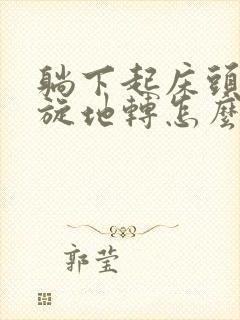 躺下起床頭
旋地轉怎麼
郭莹